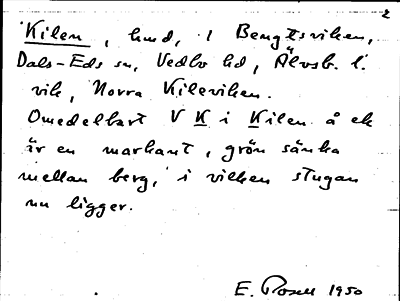 2
Kilen, hmd, i Bengtsviken,
Dals-Eds sn, Vedbo hd, Älvsb. l.
vik, Norra Kileviken.
Omedelbart V K i Kilen å ek
är en markant, grön sänka
mellan berg, i vilken stugan
nu ligger.
E. 1950